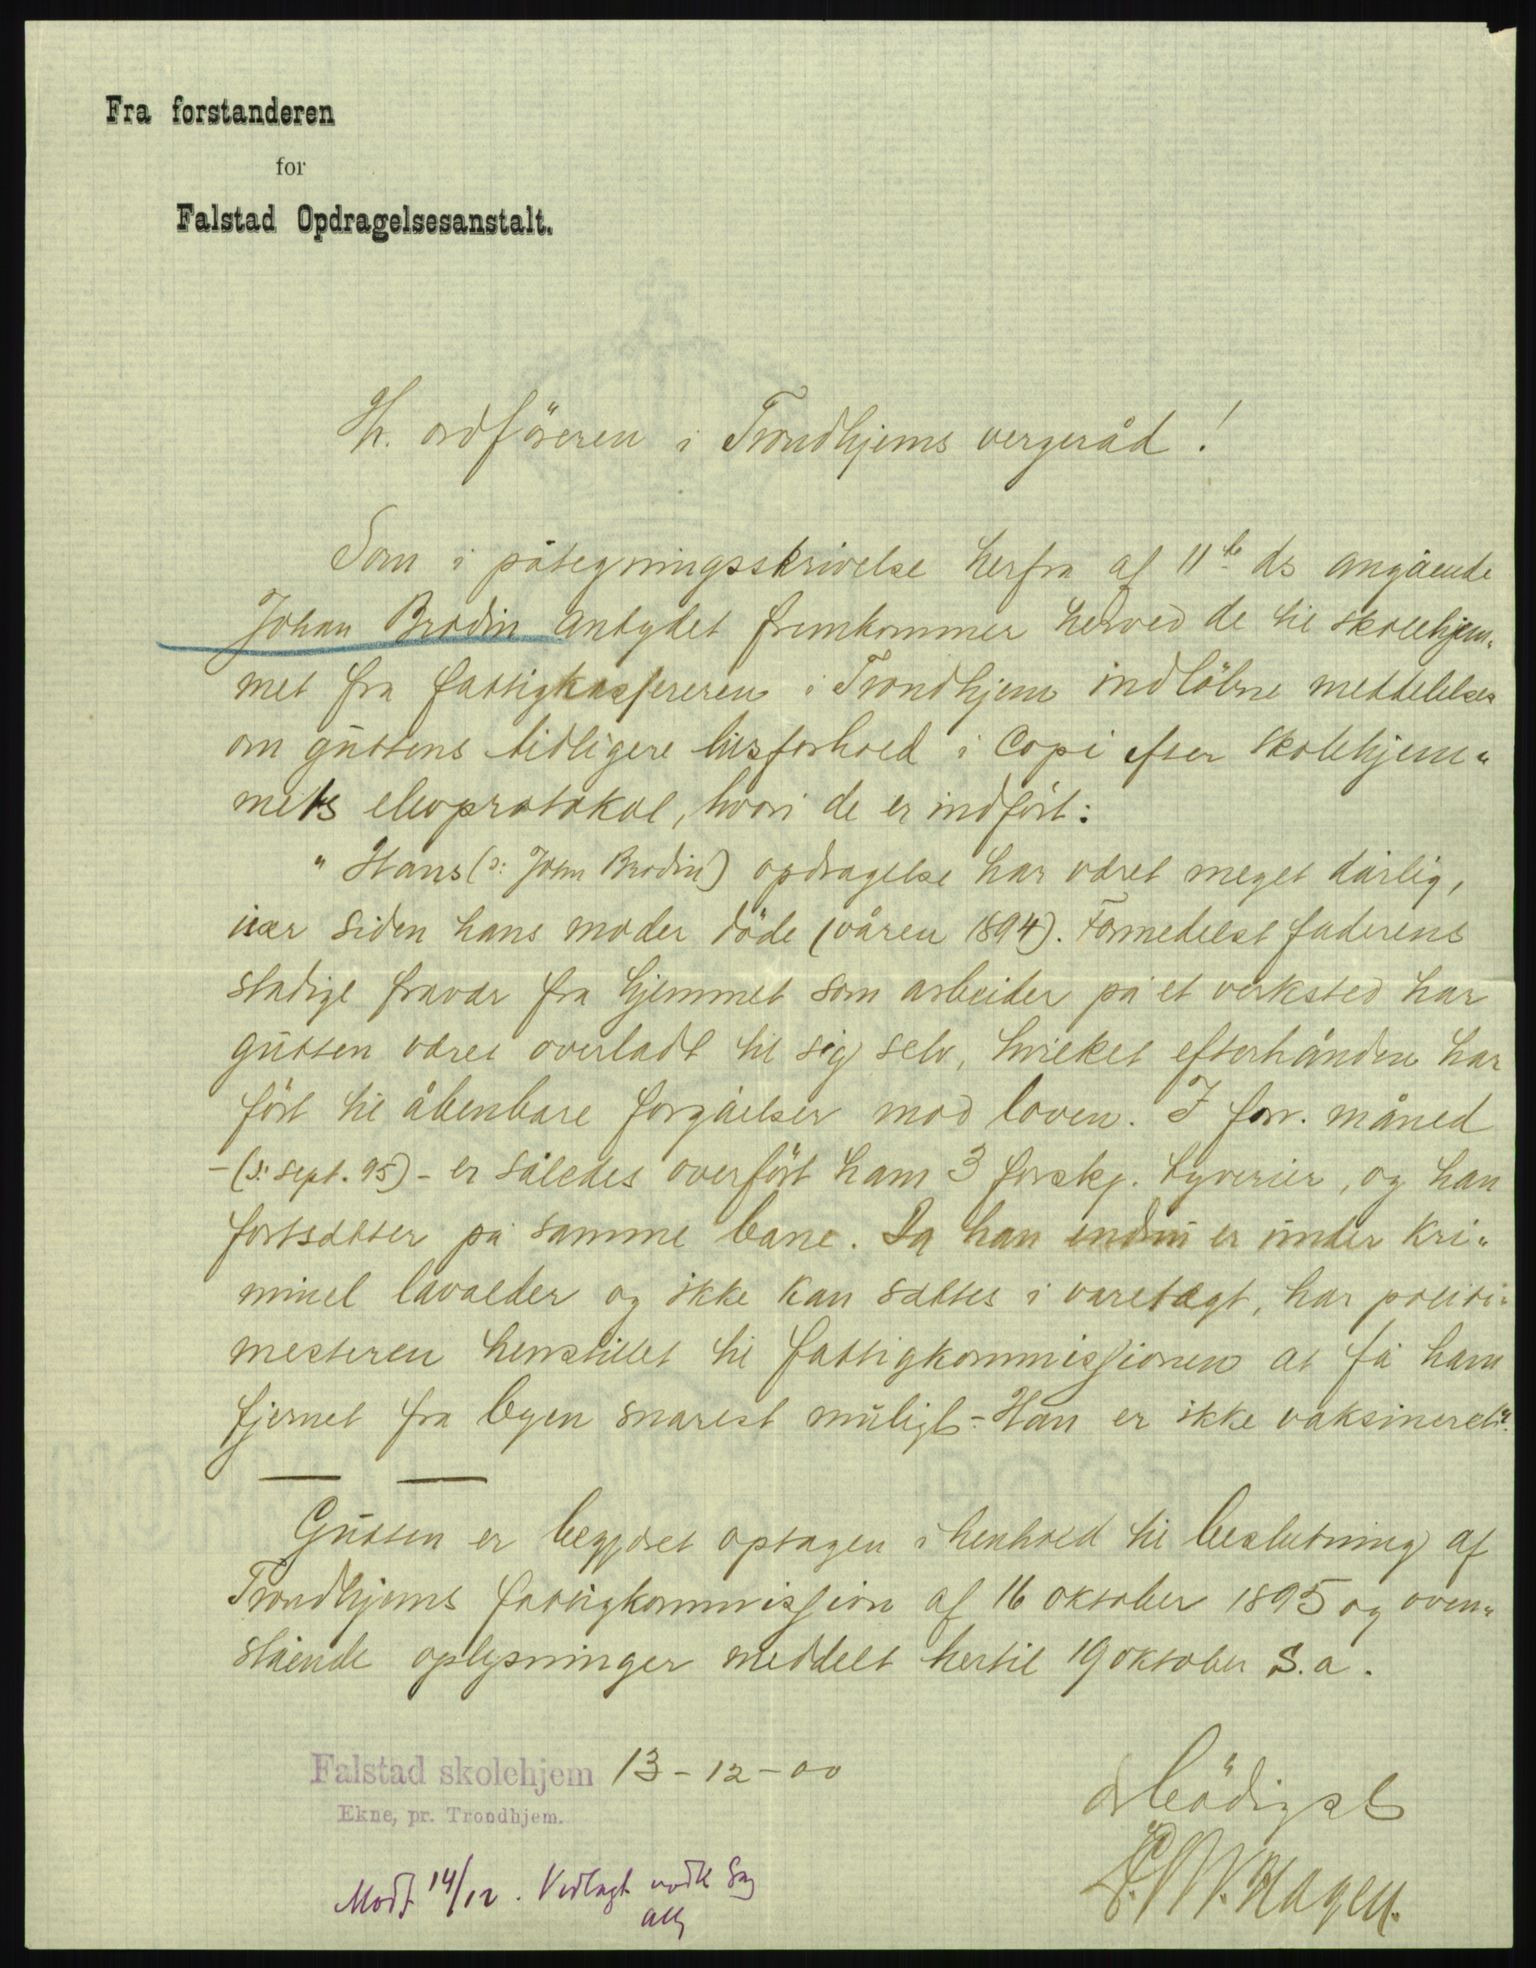 Fra forstanderen
for
Falstad Opdragelsesanstalt.
Hr. ordföreren i Trondhjems vergeråd!
Som i påtegningsskrivelse herfra af 11te ds angående
Johan Brodin antydet fremkommer herved de til skolehjem-
met fra fattigkassereren i Trondhjem indløbne meddelelser
om guttens tidligere livsforhold i Copi efter skolehjem-
mets elevprotokol, hvori de er indført:
"Hans (ɔ: John Brodin) opdragelse har været meget dårlig,
især siden hans moder døde (våren 1894). Formedelst faderens
stadige fravær fra hjemmet som arbeider på et verksted har
gutten været overladt til sig selv, hvilket efterhånden har
ført til åbenbare forgåelser mod loven. I forr. måned
-(ɔ: sept. 95)- er således overført ham 3 forskj. tyverier, og han
fortsætter på samme bane. Da han endnu er under kri-
minel lavalder og ikke kan sættes i varetægt, har politi-
mesteren henstillet til fattigkommissionen at få ham
fjernet fra byen snarest muligt - Han er ikke vaksineret".
Gutten er begjæret optagen i henhold til beslutning af
Trondhjems fattigkommission af 16 oktober 1895 og oven-
stående oplysninger meddelt hertil 19 oktober s.a.
Falstad skolehjem 13-12-00
Ekne, pr. Trondhjem.
ærbødigst
W. Hagen.
Modt 14/12. Vedlagt